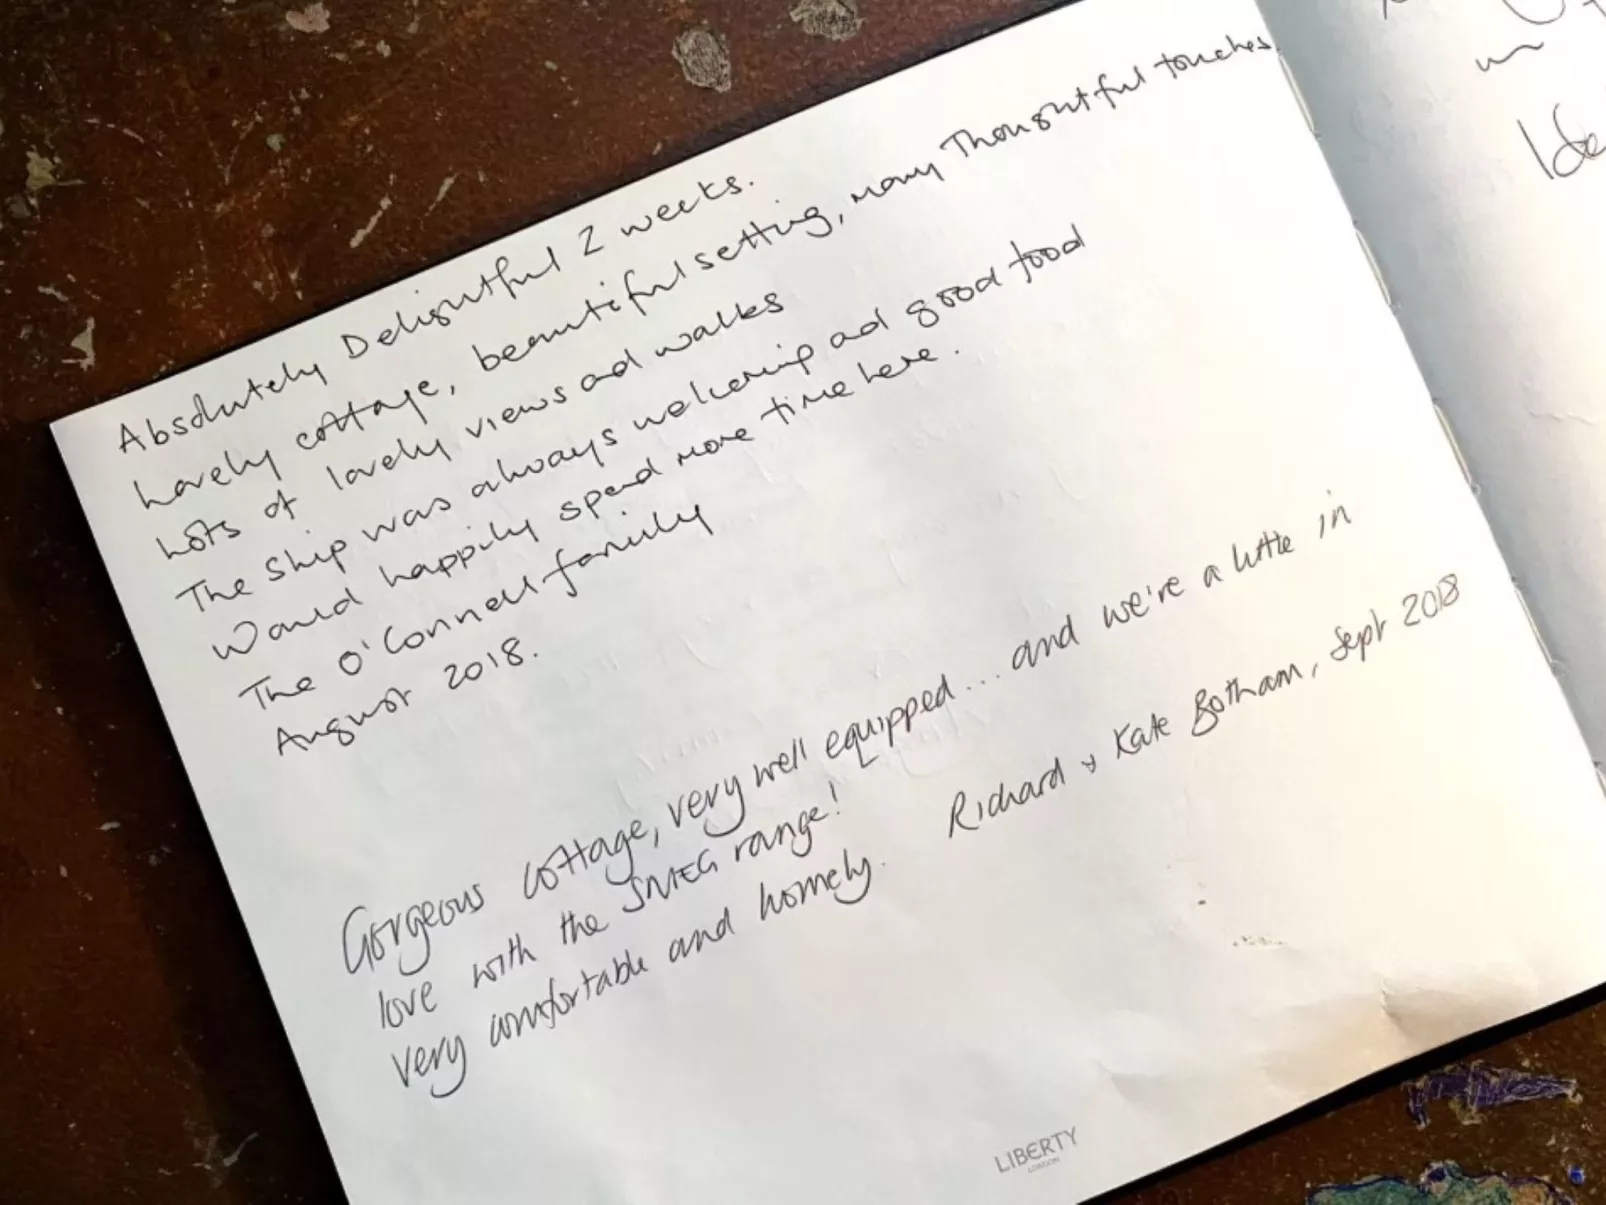 Absolutely Delightful 2 weeks.
Lovely cottage, beautiful setting, many Thoughtful touches.
Lots of lovely views and walks
The Ship was always welcoming and good food
Would happily spend more time here.
The O'Connell family
August 2018.
Gorgeous cottage, very well equipped... and we're a little in
love with the SMEG range!
very comfortable and homely. Richard & Kate Botham, Sept 2018
LIBERTY
LONDON